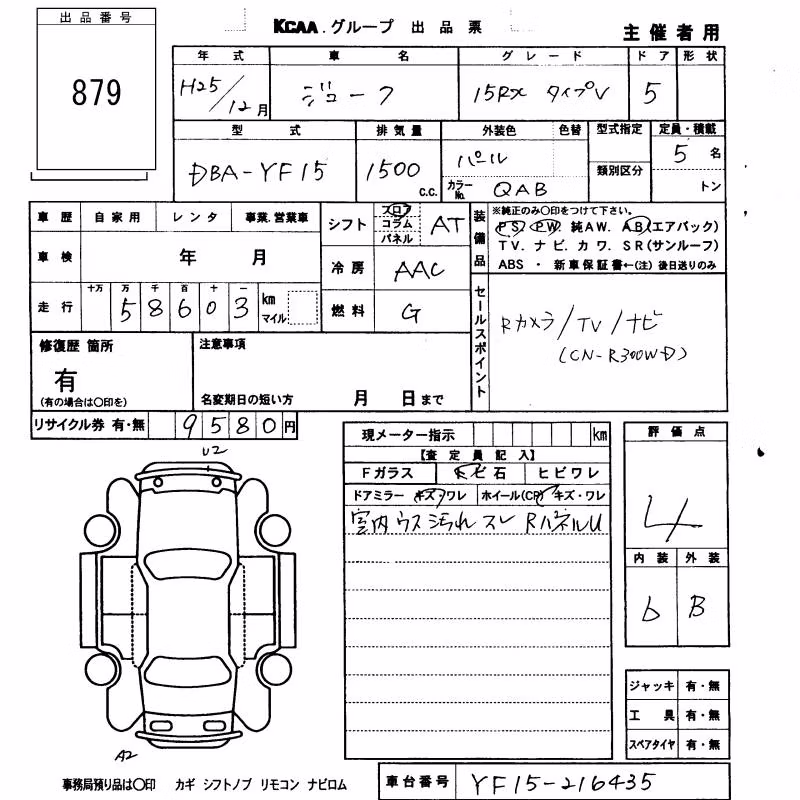 出品番号
879
KCAA.グループ 出品票
主催者用
年式 車名 グレード ドア 形状
H25/12月 ジューク 15RX タイプV 5
型式 排気量 外装色 色替 型式指定 定員・積載
DBA-YF15 1500 c.c. パール 類別区分 5 名
カラーNo. QAB トン
車歴 自家用 レンタ 事業.営業車
シフト フロア コラム パネル AT
装備品 ※純正のみ〇印をつけて下さい。
PS. PW. 純AW. AB(エアバック)
TV. ナビ. カワ. SR(サンルーフ)
ABS ・ 新車保証書←(注) 後日送りのみ
車検 年 月
冷房 AAC
走行 十万 万 千 百 十 一
5 8 6 0 3 km マイル
燃料 G
セールスポイント
Rカメラ/TV/ナビ
(CN-R300WD)
修復歴 箇所
有
(有の場合は〇印を)
注意事項
名変期日の短い方 月 日まで
リサイクル券 有・無 9580円
現メーター指示 km
【査定員記入】
Fガラス トビ石 ヒビワレ
ドアミラー キズ・ワレ ホイール(CP) キズ・ワレ
室内ウス汚れ スレ RパネルU
評価点
4
内装 外装
b B
U2
A2
ジャッキ 有・無
工具 有・無
スペアタイヤ 有・無
事務局預り品は〇印 カギ シフトノブ リモコン ナビロム
車台番号 YF15-216435